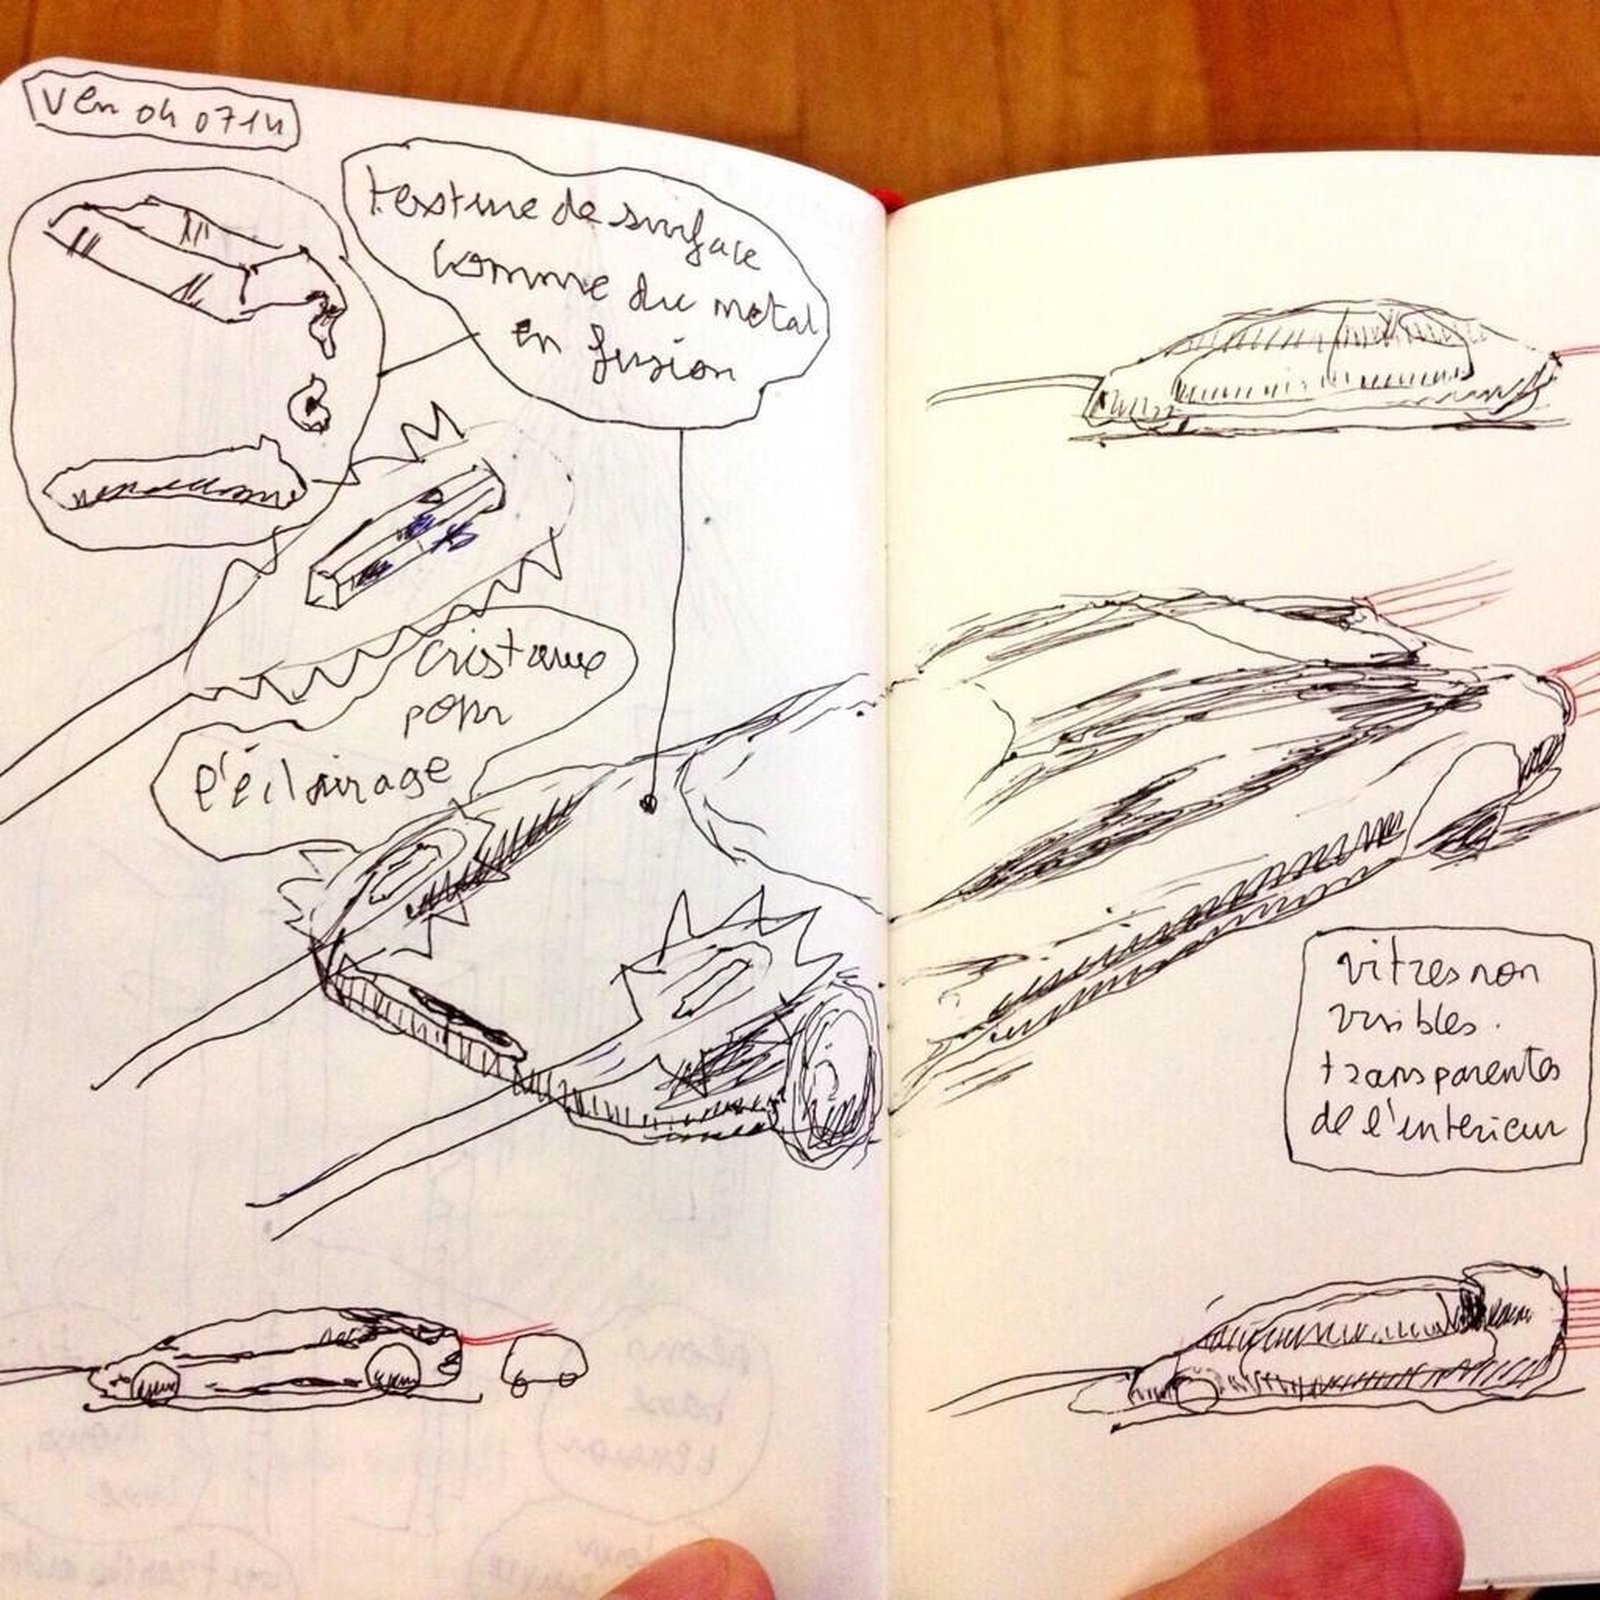 Ven 04 07 14
texture de surface
comme du metal
en fusion
cristaux
pour
l'éclairage
vitres non
visibles.
transparentes
de l'interieur